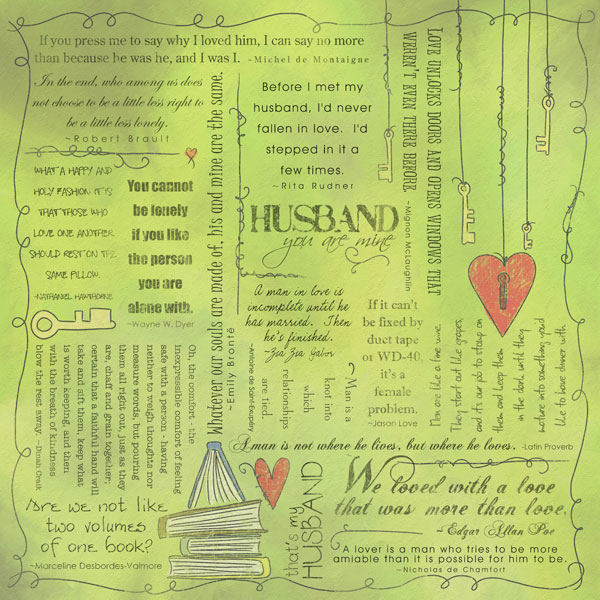 If you press me to say why I loved him, I can say no more
than because he was he, and I was I. ~Michel de Montaigne
In the end, who among us does
not choose to be a little less right to
be a little less lonely.
~Robert Brault
WHAT A HAPPY AND
HOLY FASHION IT IS
THAT THOSE WHO
LOVE ONE ANOTHER
SHOULD REST ON THE
SAME PILLOW.
~NATHANIEL HAWTHORNE
You cannot
be lonely
if you like
the person
you are
alone with.
~Wayne W. Dyer
Whatever our souls are made of, his and mine are the same.
~Emily Brontë
Before I met my
husband, I'd never
fallen in love. I'd
stepped in it a
few times.
~Rita Rudner
LOVE UNLOCKS DOORS AND OPENS WINDOWS THAT
WEREN'T EVEN THERE BEFORE.
~Mignon McLaughlin
HUSBAND
you are mine
A man in love is
incomplete until he
has married. Then
he's finished.
~Zsa Zsa Gabor
If it can't
be fixed by
duct tape
or WD-40,
it's a
female
problem.
~Jason Love
Men are like a fine wine.
They start out like grapes,
and it's our job to stomp on
them and keep them
in the dark until they
mature into something you'd
like to have dinner with.
Man is a
knot into
which
relationships
are tied.
~Antoine de Saint-Exupéry
Oh, the comfort - the
inexpressible comfort of feeling
safe with a person - having
neither to weigh thoughts nor
measure words, but pouring
them all right out, just as they
are, chaff and grain together;
certain that a faithful hand will
take and sift them, keep what
is worth keeping, and then
with the breath of kindness
blow the rest away. ~Dinah Craik
A man is not where he lives, but where he loves. ~Latin Proverb
Are we not like
two volumes
of one book?
~Marceline Desbordes-Valmore
that's my
HUSBAND
We loved with a love
that was more than love.
~Edgar Allan Poe
A lover is a man who tries to be more
amiable than it is possible for him to be.
~Nicholas de Chamfort